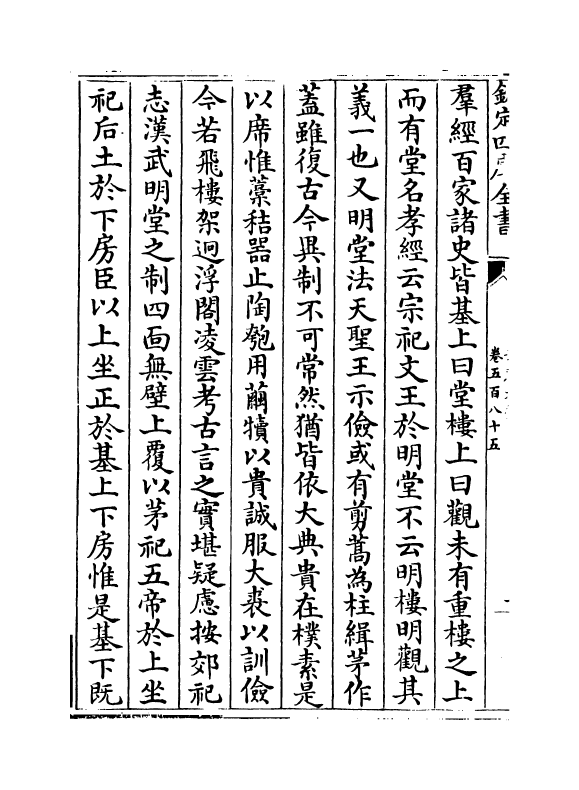 欽定四庫全書
卷五百八十五
羣經百家諸史皆基上曰堂樓上曰觀未有重樓之上
而有堂名孝經云宗祀文王於明堂不云明樓明觀其
義一也又明堂法天聖王示儉或有剪蒿為柱緝茅作
蓋雖復古今異制不可常然猶皆依大典貴在樸素是
以席惟藁秸器止陶匏用繭犢以貴誠服大裘以訓儉
今若飛樓架迥浮閣凌雲考古言之實堪疑慮按郊祀
志漢武明堂之制四面無壁上覆以茅祀五帝於上坐
祀后土於下房臣以上坐正於基上下房惟是基下既